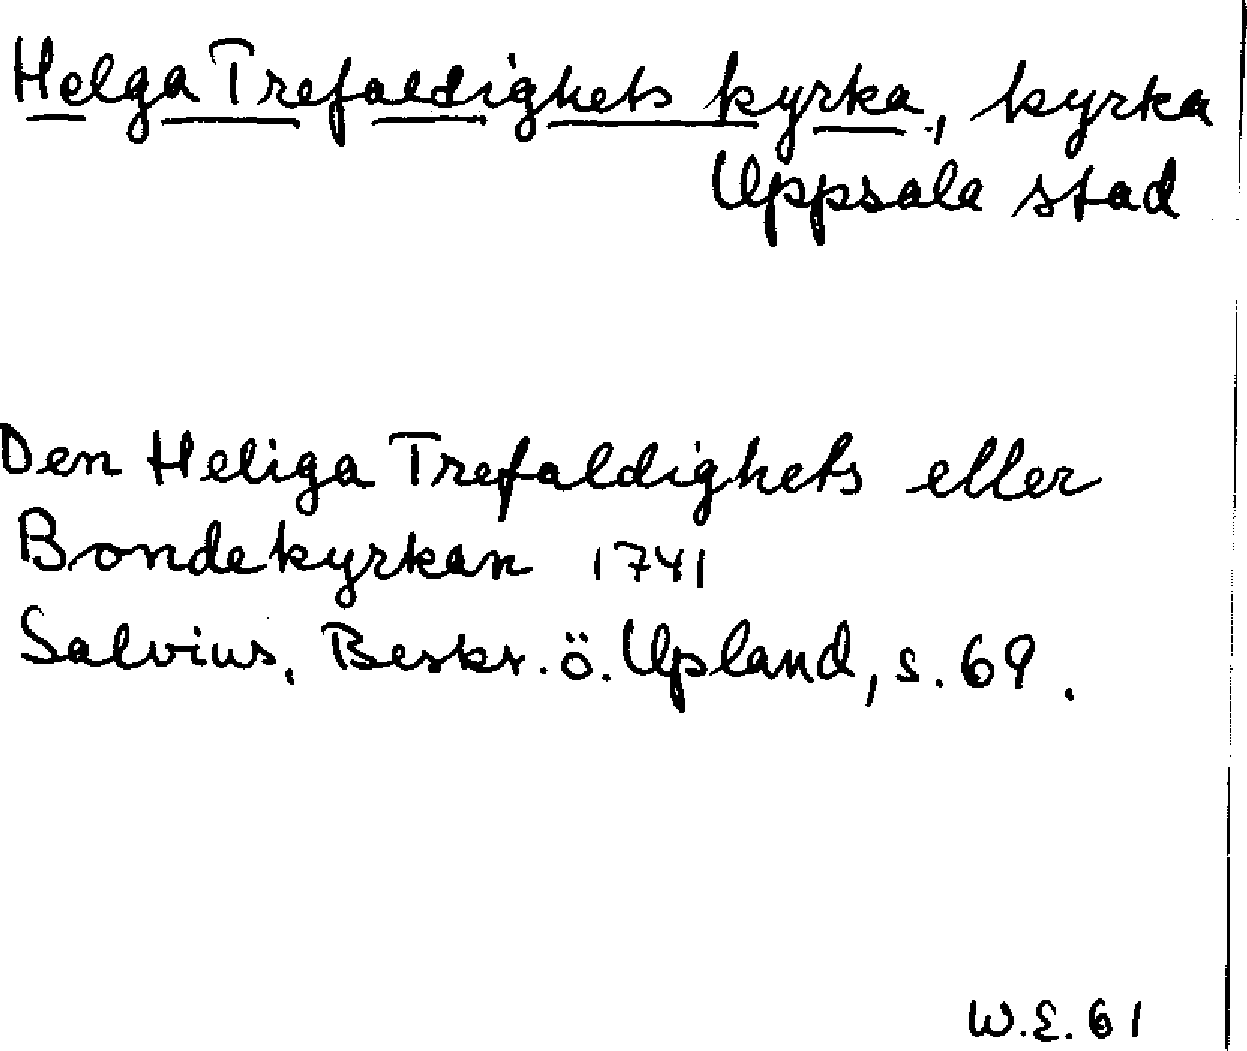 Helga Trefaldighets kyrka, kyrka
Uppsala stad
Den Heliga Trefaldighets eller
Bondekyrkan 1741
Salvius, Beskr. ö. Upland, s. 69.
W.E. 61